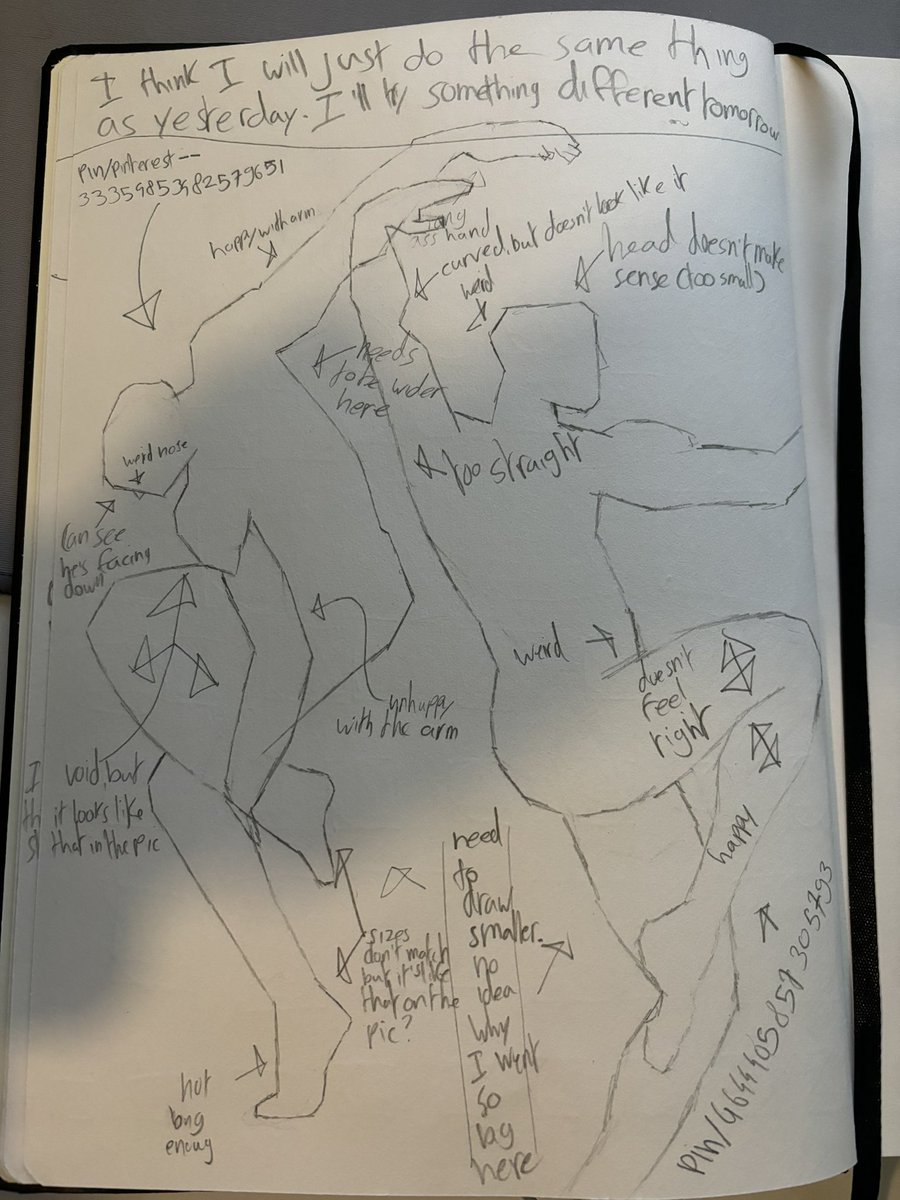 I think I will just do the same thing
as yesterday. I'll try something different tomorrow
Pin/pinterest --
happy with arm
long
ass hand
curved, but doesn't look like it
weird
head doesn't make
sense (too small)
needs
to be wider
here
weird nose
too straight
Can see
he's facing
down
weird
doesn't
feel
right
unhappy
with the arm
void, but
it looks like
that in the pic
happy
need
to
draw
smaller.
no
idea
why
I went
so
big
here
sizes
don't match
but it's like
that on the
pic?
not
long
enoug